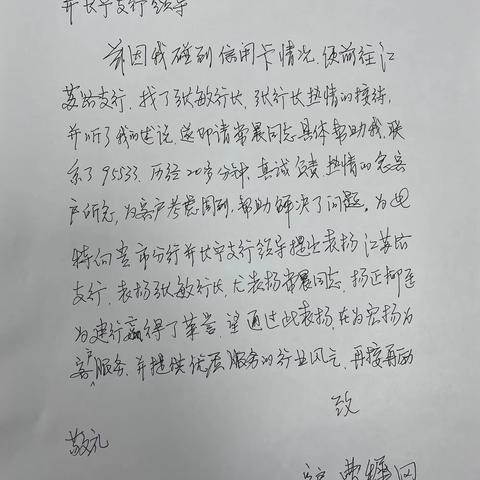 并长宁支行领导
兹因我碰到信用卡情况,须前往江
苏路支行,找了张敏行长,张行长热情的接待,
并听了我的述说,遂即请常晨同志具体帮助我,联
系了95533,历经20多分钟,真诚负责,热情的急客
户所急,为客户考虑周到,帮助解决了问题。为此
特向贵市分行并长宁支行领导提出表扬江苏路
支行,表扬张敏行长,尤表扬常晨同志,扬正抑歪
为建行赢得了荣誉,望通过此表扬,在为宏扬为
客户服务,并提供优质服务的行业风气,再接再励
致
敬礼